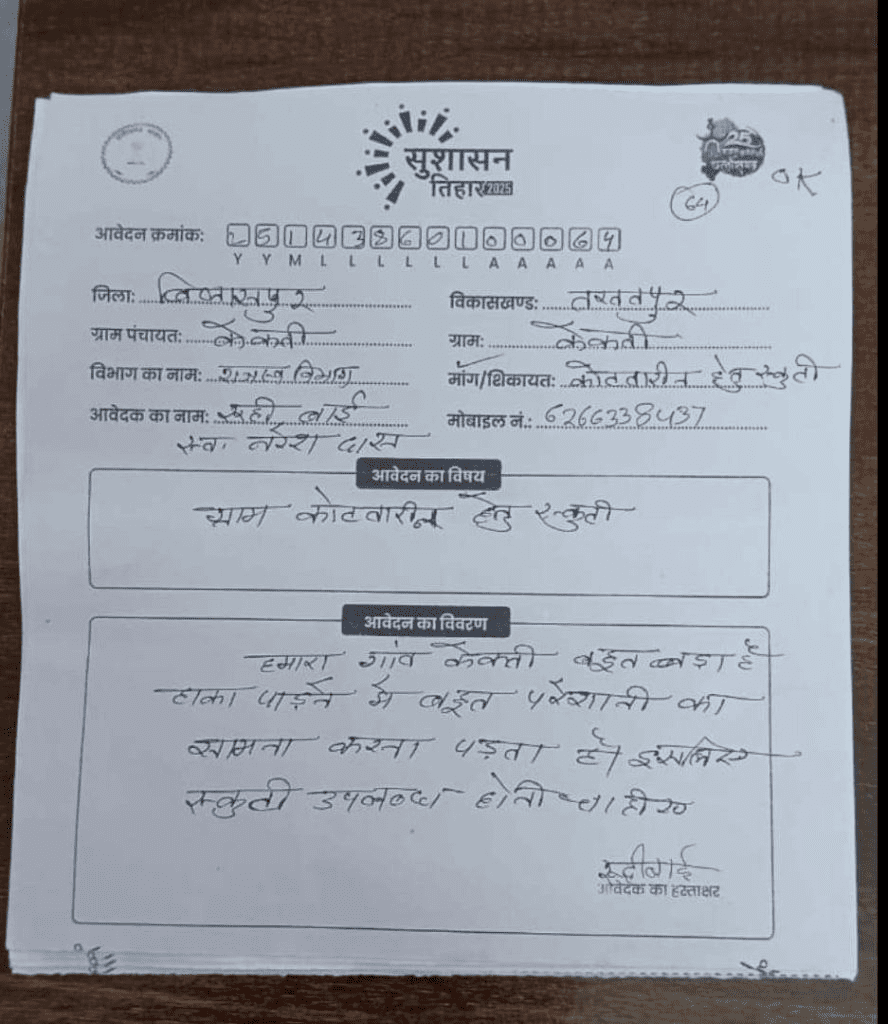 सुशासन
तिहार 2025
25
OK
64
आवेदन क्रमांक: 2 5 1 4 3 8 6 2 1 0 0 0 6 4
Y Y M L L L L L L A A A A A
जिला: बिलासपुर विकासखण्ड: तखतपुर
ग्राम पंचायत: केकती ग्राम: केकती
विभाग का नाम: राजस्व विभाग माँग/शिकायत: कोटवारीन हेतु स्कुती
आवेदक का नाम: रूही बाई मोबाइल नं.: 6266338437
स्व. नरेश दास
आवेदन का विषय
ग्राम कोटवारीन हेतु स्कुती
आवेदन का विवरण
हमारा गांव केकती बहुत बड़ा है
हाका पाड़ने मे बहुत परेशानी का
सामना करना पड़ता है। इसलिए
स्कुती उपलब्ध होनी चाहीए
आवेदक का हस्ताक्षर